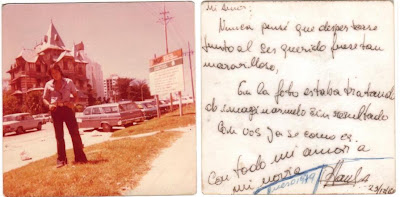 mi amor:
Nunca pensé que despertarse
junto al ser querido fuese tan
maravilloso,
En la foto estaba tratando
de imaginarmelo sin resultado
Con vos ya se como es.
Con todo mi amor a
mi novia
enero 1979